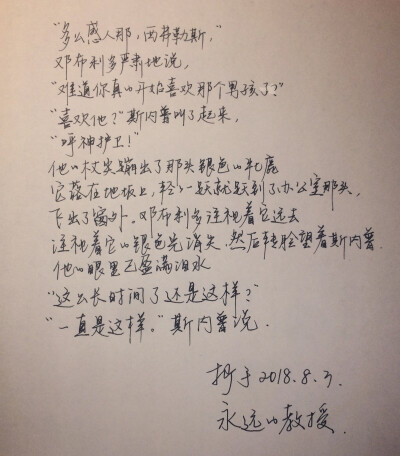 “多么感人那，西弗勒斯，”
邓布利多严肃地说，
“难道你真的开始喜欢那个男孩了？”
“喜欢他？”斯内普叫了起来，
“呼神护卫！”
他的杖尖蹦出了那头银色的牝鹿
它落在地板上，轻轻一跃就跃到了办公室那头，
飞出了窗外。邓布利多注视着它远去
注视着它的银色光消失，然后转脸望着斯内普.
他的眼里已盈满泪水
“这么长时间了还是这样？”
“一直是这样。”斯内普说.
抄于2018.8.3.
永远的教授.